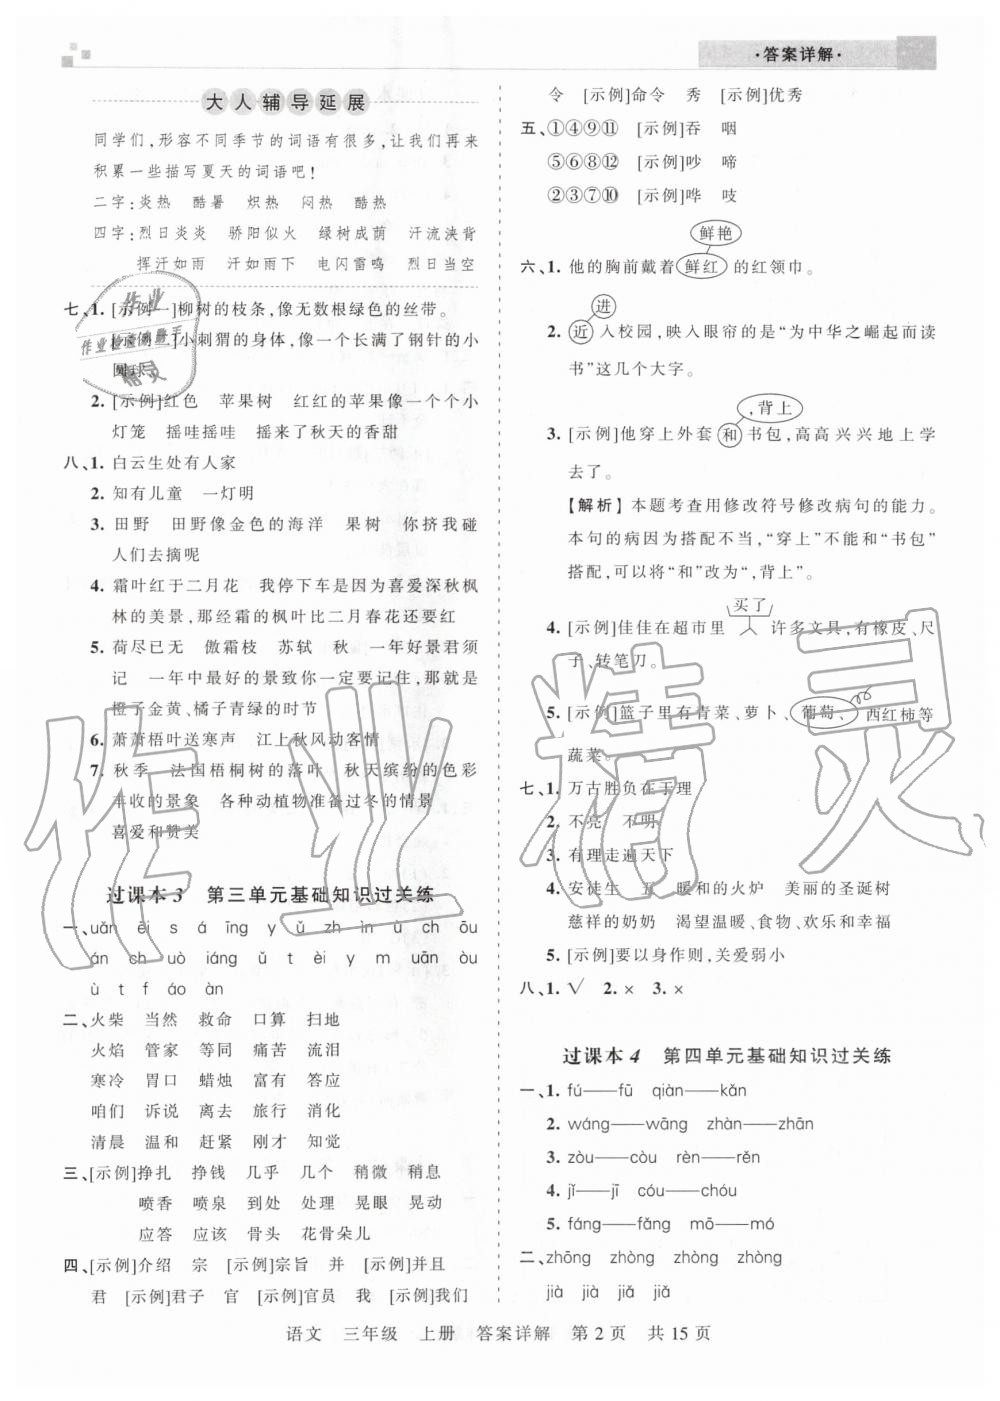 ·答案详解·
大人辅导延展
同学们,形容不同季节的词语有很多,让我们再来
积累一些描写夏天的词语吧!
二字:炎热 酷暑 炽热 闷热 酷热
四字:烈日炎炎 骄阳似火 绿树成荫 汗流浃背
挥汗如雨 汗如雨下 电闪雷鸣 烈日当空
七、1. [示例一]柳树的枝条,像无数根绿色的丝带。
[示例二]小刺猬的身体,像一个长满了钢针的小
圆球。
2. [示例]红色 苹果树 红红的苹果像一个个小
灯笼 摇哇摇哇 摇来了秋天的香甜
八、1. 白云生处有人家
2. 知有儿童 一灯明
3. 田野 田野像金色的海洋 果树 你挤我碰
人们去摘呢
4. 霜叶红于二月花 我停下车是因为喜爱深秋枫
林的美景,那经霜的枫叶比二月春花还要红
5. 荷尽已无 傲霜枝 苏轼 秋 一年好景君须
记 一年中最好的景致你一定要记住,那就是
橙子金黄、橘子青绿的时节
6. 萧萧梧叶送寒声 江上秋风动客情
7. 秋季 法国梧桐树的落叶 秋天缤纷的色彩
丰收的景象 各种动植物准备过冬的情景
喜爱和赞美
过课本3 第三单元基础知识过关练
一、uǎn ēi s á īng y ǔ zh ìn ū ch ōu
án ch uò iáng ǔ t èi y m uān òu
ù t f áo àn
二、火柴 当然 救命 口算 扫地
火焰 管家 等同 痛苦 流泪
寒冷 胃口 蜡烛 富有 答应
咱们 诉说 离去 旅行 消化
清晨 温和 赶紧 刚才 知觉
三、[示例]挣扎 挣钱 几乎 几个 稍微 稍息
喷香 喷泉 到处 处理 晃眼 晃动
应答 应该 骨头 花骨朵儿
四、[示例]介绍 宗 [示例]宗旨 并 [示例]并且
君 [示例]君子 官 [示例]官员 我 [示例]我们
令 [示例]命令 秀 [示例]优秀
五、①④⑨⑪ [示例]吞 咽
⑤⑥⑧⑫ [示例]吵 啼
②③⑦⑩ [示例]哗 吱
鲜艳
六、1. 他的胸前戴着鲜红的红领巾。
进
2. 近入校园,映入眼帘的是“为中华之崛起而读
书”这几个大字。
,背上
3. [示例]他穿上外套和书包,高高兴兴地上学
去了。
【解析】本题考查用修改符号修改病句的能力。
本句的病因为搭配不当,“穿上”不能和“书包”
搭配,可以将“和”改为“,背上”。
买了
4. [示例]佳佳在超市里 许多文具,有橡皮、尺
子、转笔刀。
5. [示例]篮子里有青菜、萝卜、葡萄、西红柿等
蔬菜。
七、1. 万古胜负在于理
2. 不亮 不明
3. 有理走遍天下
4. 安徒生 五 暖和的火炉 美丽的圣诞树
慈祥的奶奶 渴望温暖、食物、欢乐和幸福
5. [示例]要以身作则,关爱弱小
八、1. √ 2. × 3. ×
过课本4 第四单元基础知识过关练
一、1. fú——fū qiàn——kǎn
2. wáng——wāng zhàn——zhān
3. zòu——còu rèn——rěn
4. jǐ——jī cóu——chóu
5. fáng——fǎng mō——mó
二、zhōng zhòng zhòng zhòng
jià jiǎ jiǎ jià
语文 三年级 上册 答案详解 第2页 共15页
作业精灵
作业
作业检查小助手
精灵